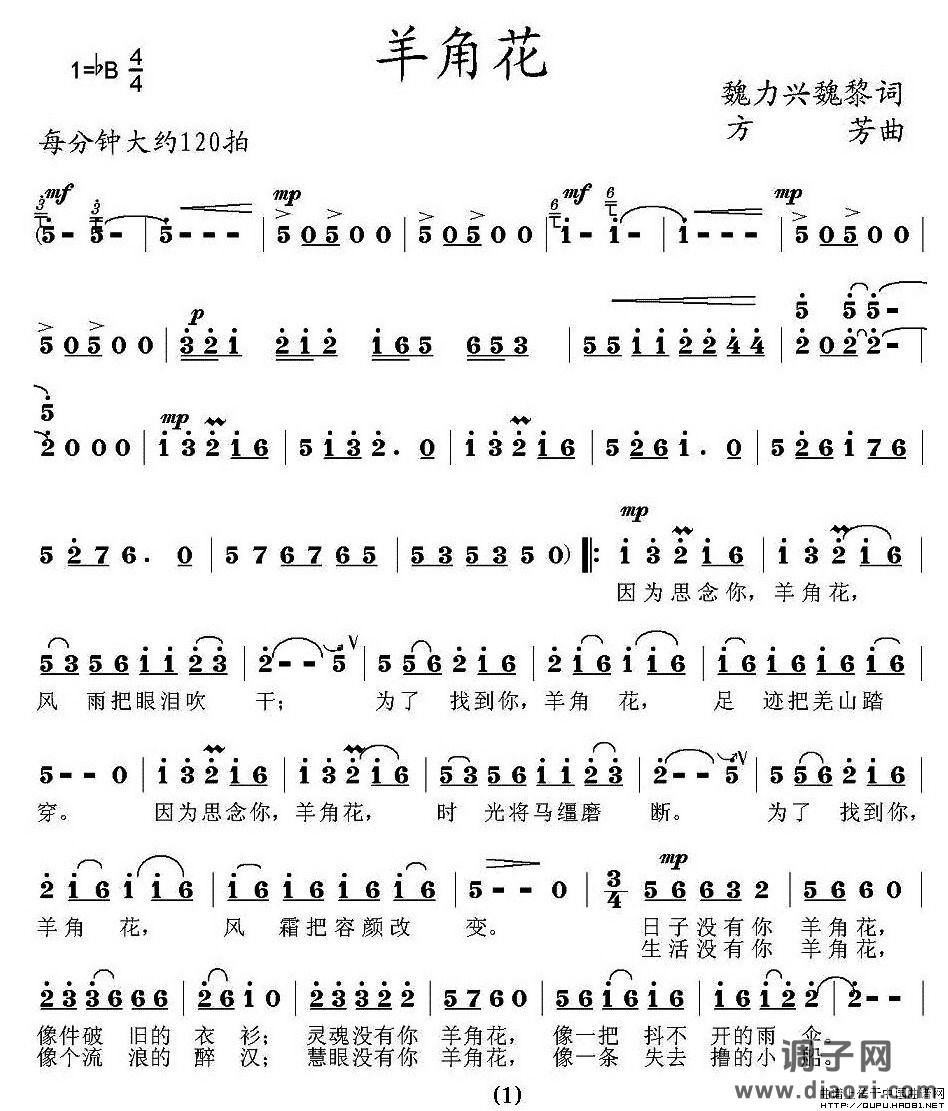 羊角花
1=♭B 4/4
魏力兴魏黎词
每分钟大约120拍
方 芳曲
mf mp mf mp
(5 - 5 - | 5 - - - | 5 0 5 0 0 | 5 0 5 0 0 | i - i - | i - - - | 5 0 5 0 0 |
p
5 0 5 0 0 | 3 2 i 2 i 2 i 6 5 6 5 3 | 5 5 i i 2 2 4 4 | 2 0 2 2 - |
5 5 5 -
5
mp
2 0 0 0 | i 3 2 i 6 | 5 i 3 2 . 0 | i 3 2 i 6 | 5 2 6 i . 0 | 5 2 6 i 7 6 |
mp
5 2 7 6 . 0 | 5 7 6 7 6 5 | 5 3 5 3 5 0) ‖: i 3 2 i 6 | i 3 2 i 6 |
因为思念你，羊角花，
5 3 5 6 i i 2 3 | 2 - - 5 | 5 5 6 2 i 6 | 2 i 6 i i 6 | i 6 i 6 i 6 i 6 |
风 雨把眼泪吹 干； 为了 找到你，羊角 花， 足 迹把羌山踏
5 - - 0 | i 3 2 i 6 | i 3 2 i 6 | 5 3 5 6 i i 2 3 | 2 - - 5 | 5 5 6 2 i 6 |
穿。 因为思念你，羊角花， 时 光将马缰磨 断。 为了 找到你，
mp
2 i 6 i i 6 | i 6 i 6 i 6 i 6 | 5 - - 0 | 3/4 5 6 6 3 2 | 5 6 6 0 |
羊角 花， 风 霜把容颜改 变。 日子没有你 羊角花，
生活没有你 羊角花，
2 3 3 6 6 6 | 2 6 i 0 | 2 3 3 2 2 | 5 7 6 0 | 5 6 i 6 i 6 | i 6 i 2 2 | 2 - - |
像件破 旧的 衣 衫；灵魂没有你 羊角花， 像一把 抖不 开的雨 伞。
像个流 浪的 醉 汉；慧眼没有你 羊角花， 像一条 失去 撸的小 船。
(1)
调子网
www.diaozi.com
HTTP://QUPU.HAO81.NET